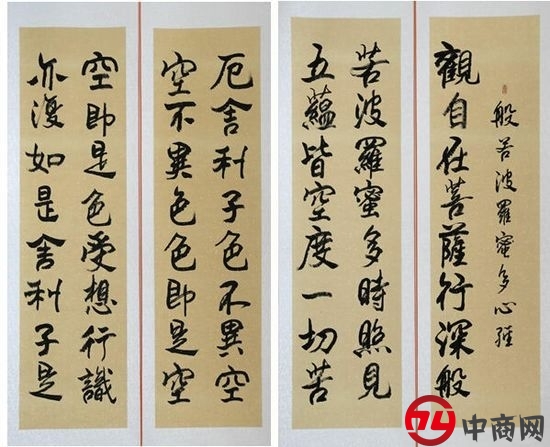 般若波羅蜜多心經
觀自在菩薩行深般
若波羅蜜多時照見
五蘊皆空度一切苦
厄舍利子色不異空
空不異色色即是空
空即是色受想行識
亦復如是舍利子是
中商网